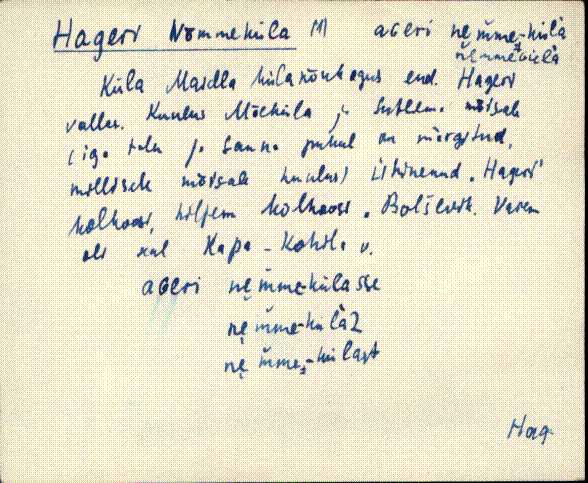 Hageri Nõmmeküla (1) aGeri nẹ̆mme-külà
nẹmmeɢülà
Küla Maidla külanõukogus end. Hageri
vallas. Kuulus Mäeküla ja Sutlema mõisale
(iga talu ja sauna puhul on märgitud,
millisele mõisale kuulus). Ühinenud „Hageri"
kolhoosi, hiljem kolhoosi „Bolševik". Varem
oli seal Rapa-Kohila v.
aGeri nẹ̆mme-külasse
nẹ̆mme-külàz
nẹ̆mme-külast
Hag